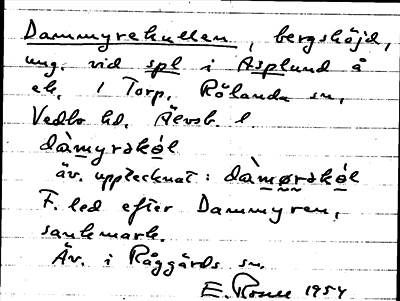 Dammyrekullen, bergshöjd,
ung. vid spl i Asplund å
ek. 1 Torp, Rölanda sn,
Vedbo hd, Älvsb. l.
dàmyrskól
äv. upptecknat: dàmørskól
F. led efter Dammyren,
sankmark.
Äv. i Råggärds sn.
E. 1954